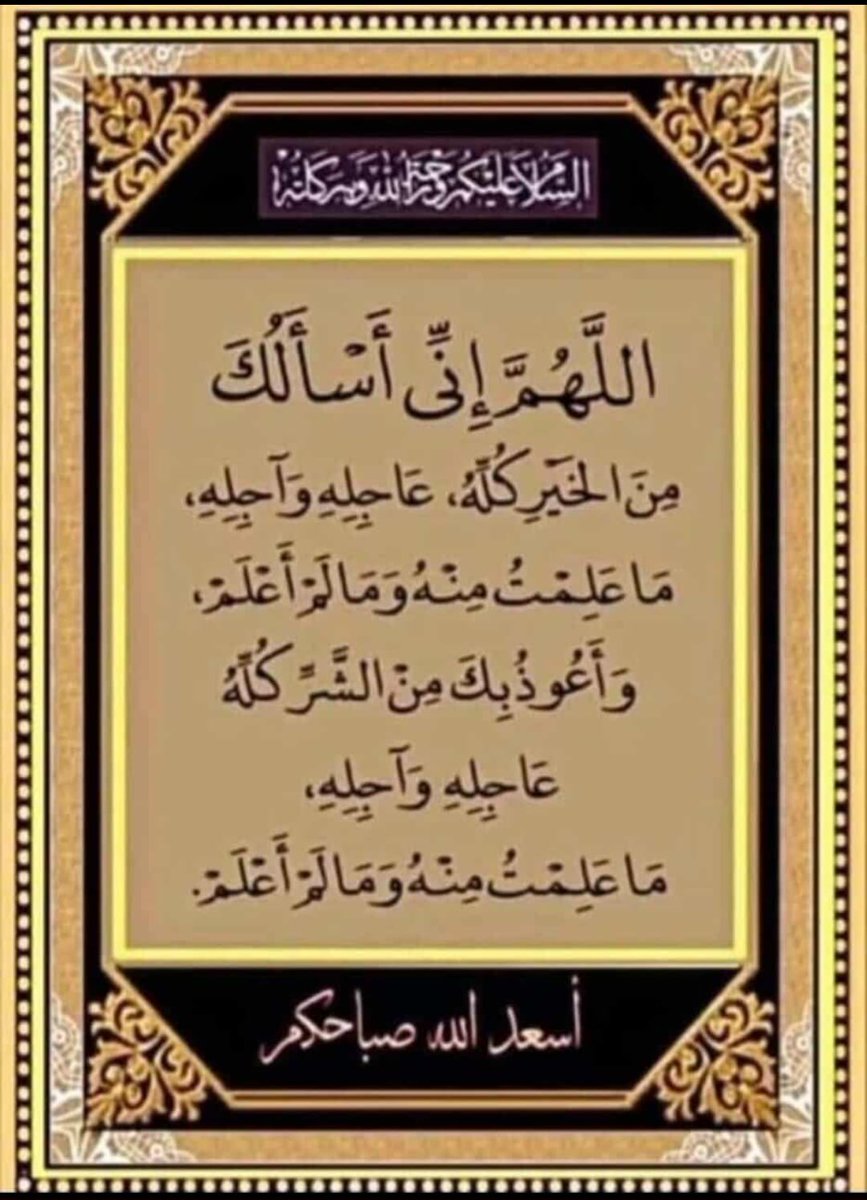 السَّلَامُ عَلَيْكُمْ وَرَحْمَةُ اللهِ وَبَرَكَاتُهُ
اللَّهُمَّ إِنِّي أَسْأَلُكَ
مِنَ الْخَيْرِ كُلِّهِ، عَاجِلِهِ وَآجِلِهِ،
مَا عَلِمْتُ مِنْهُ وَمَا لَمْ أَعْلَمْ،
وَأَعُوذُ بِكَ مِنْ الشَّرِّ كُلِّهِ
عَاجِلِهِ وَآجِلِهِ،
مَا عَلِمْتُ مِنْهُ وَمَا لَمْ أَعْلَمْ.
أسعد الله صباحكم